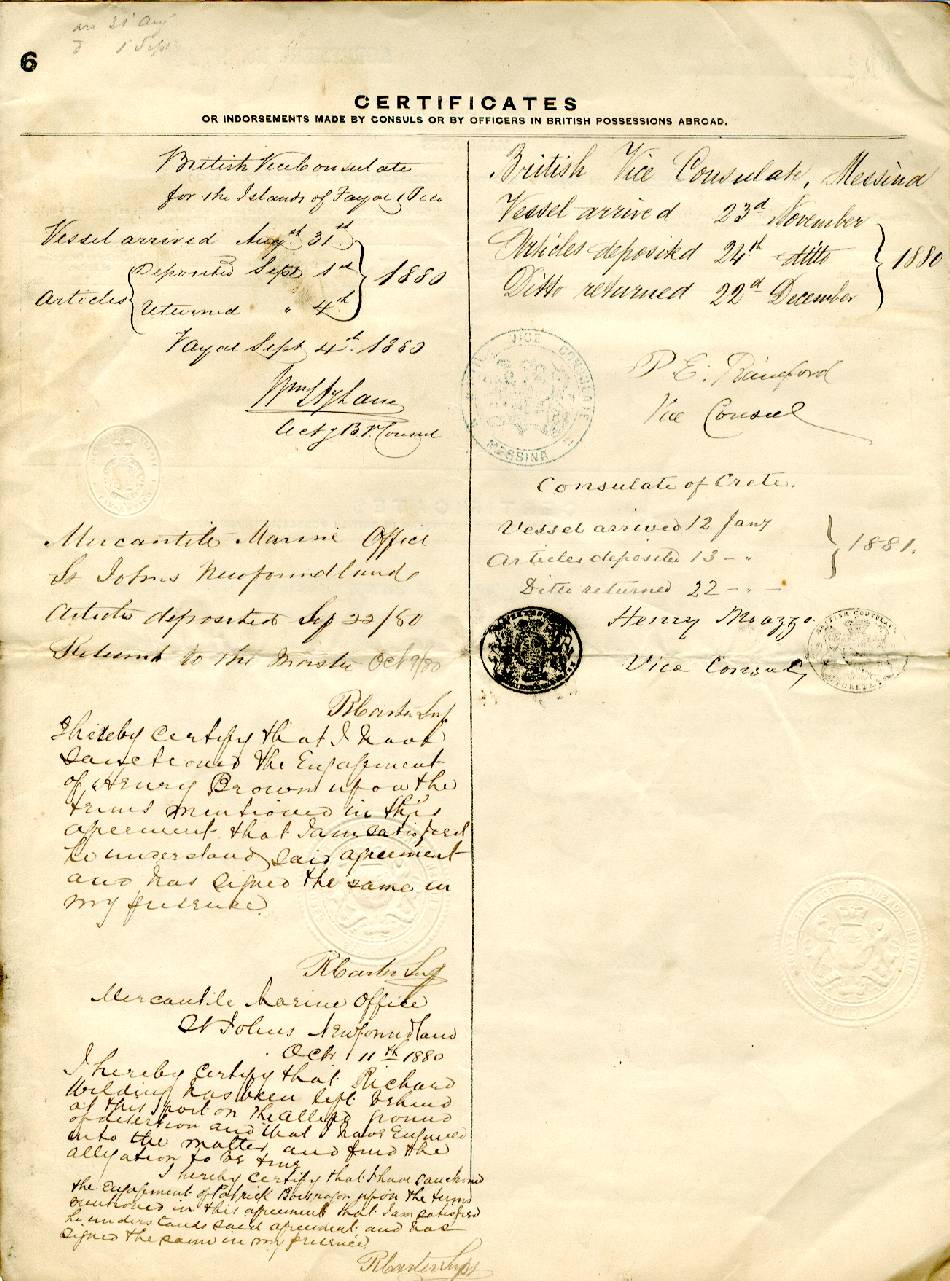 6
CERTIFICATES
OR INDORSEMENTS MADE BY CONSULS OR BY OFFICERS IN BRITISH POSSESSIONS ABROAD.
British Vice Consulate
for the Islands of Fayal &
Vessel arrived Augst 31st
Articles
Deposited Sept 1st
Returned " 4th
1880
Fayal Sept 4th 1880
Consul
Mercantile Marine Office
St Johns Newfoundland
Articles deposited Sep 22/80
Returned to the Master Oct 9/80
R Carter Supt
I hereby certify that I have
sanctioned the Engagement
of Henry Brown upon the
terms mentioned in this
agreement that I am satisfied
he understands said agreement
and has signed the same in
my presence
R Carter Supt
Mercantile Marine Office
St Johns Newfoundland
Octr 11th 1880
I hereby certify that Richard
Wilding has been left behind
at this port on the alleged ground
of desertion and that I have Enquired
into the matter and find the
allegation to be true
I hereby certify that I have sanctioned
the engagement of Patrick upon the terms
mentioned in this agreement that I am satisfied
he understands said agreement and has
signed the same in my presence
R Carter Supt
British Vice Consulate, Messina
Vessel arrived 23d November
Articles deposited 24th ditto
Ditto returned 22d December
1880
VICE CONSULATE
MESSINA
P. E.
Vice Consul
Consulate of Crete.
Vessel arrived 12 Jany
Articles deposited 13 - "
Ditto returned 22 - " -
1881.
Henry
Vice Consul